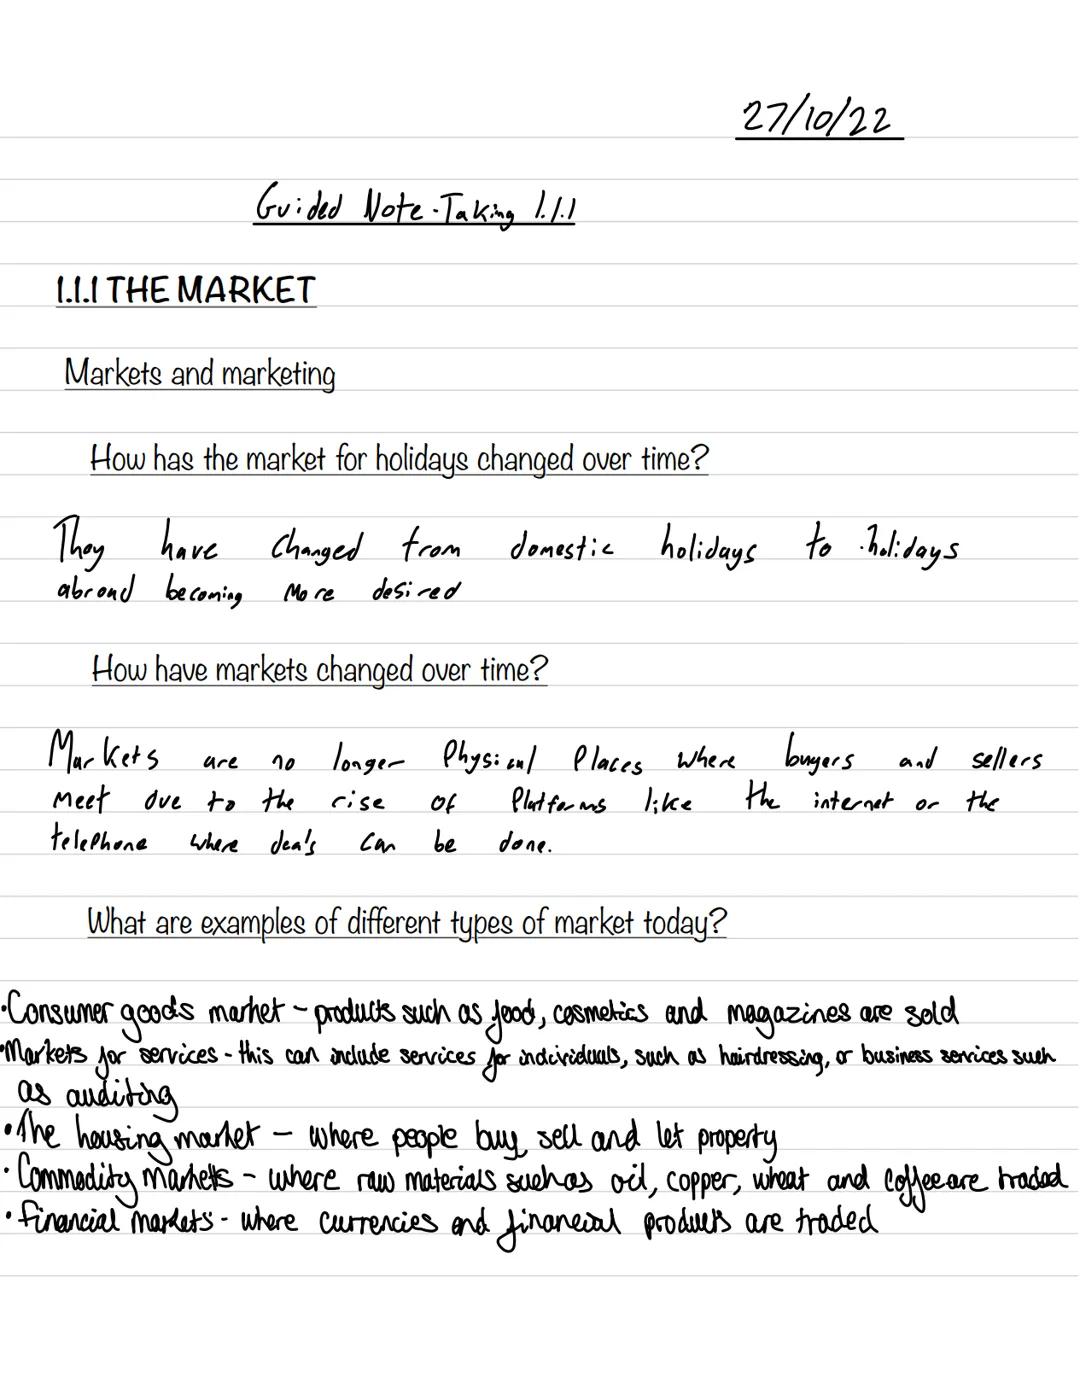 27/10/22
Guided Note-Taking 1.1.1
1.1.1 THE MARKET
Markets and marketing
How has the market for holidays changed over time?
They have changed from domestic holidays to holidays
abroad becoming more desired
How have markets changed over time?
Markets are no longer Physical Places where buyers and sellers
meet due to the rise of Platforms like the internet or the
telephone where deals can be done.
What are examples of different types of market today?
•Consumer goods market - products such as food, cosmetics and magazines are sold
•Markets for services - this can include services for individuals, such as hairdressing, or business services such
as auditing
•The housing market - where people buy, sell and let property
•Commodity markets - where raw materials such as oil, copper, wheat and coffee are traded
•financial markets - where currencies and financial products are traded